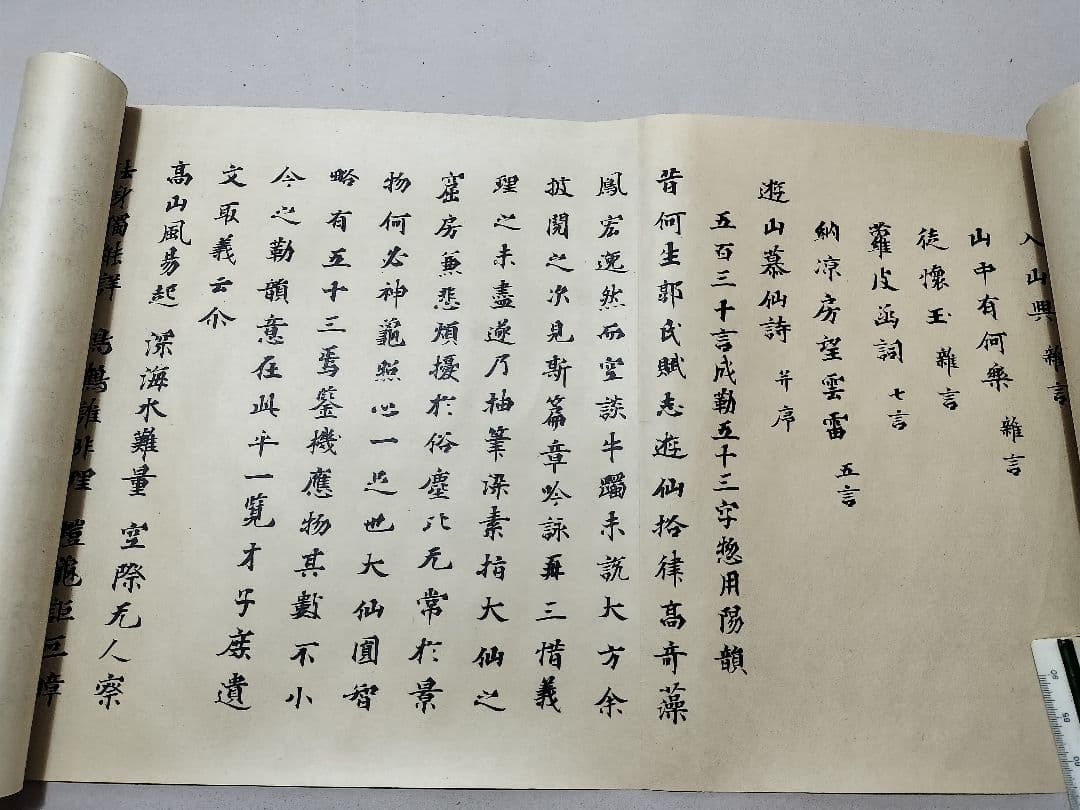 入山興 雜言
山中有何樂 雜言
徒懷玉 雜言
蘿皮函詞 七言
納凉房望雲雷 五言
遊山慕仙詩 并序
五百三十言成勒五十三字惣用陽韻
昔何生郭氏賦志遊仙格律高奇藻
鳳宏逸然而空談牛躅未說大方余
披閱之次見斯篇章吟詠再三惜義
理之未盡遂乃抽筆染素指大仙之
窟房兼悲煩擾於俗塵比无常於景
物何必神龜照心一足也大仙圓智
略有五十三焉鑒機應物其數不小
今之勒韻意在此乎一覽才子庶遺
文取義云尒
高山風易起 深海水難量 空際无人察
身獨能詳 鳧鶴誰非理 螘龜詎